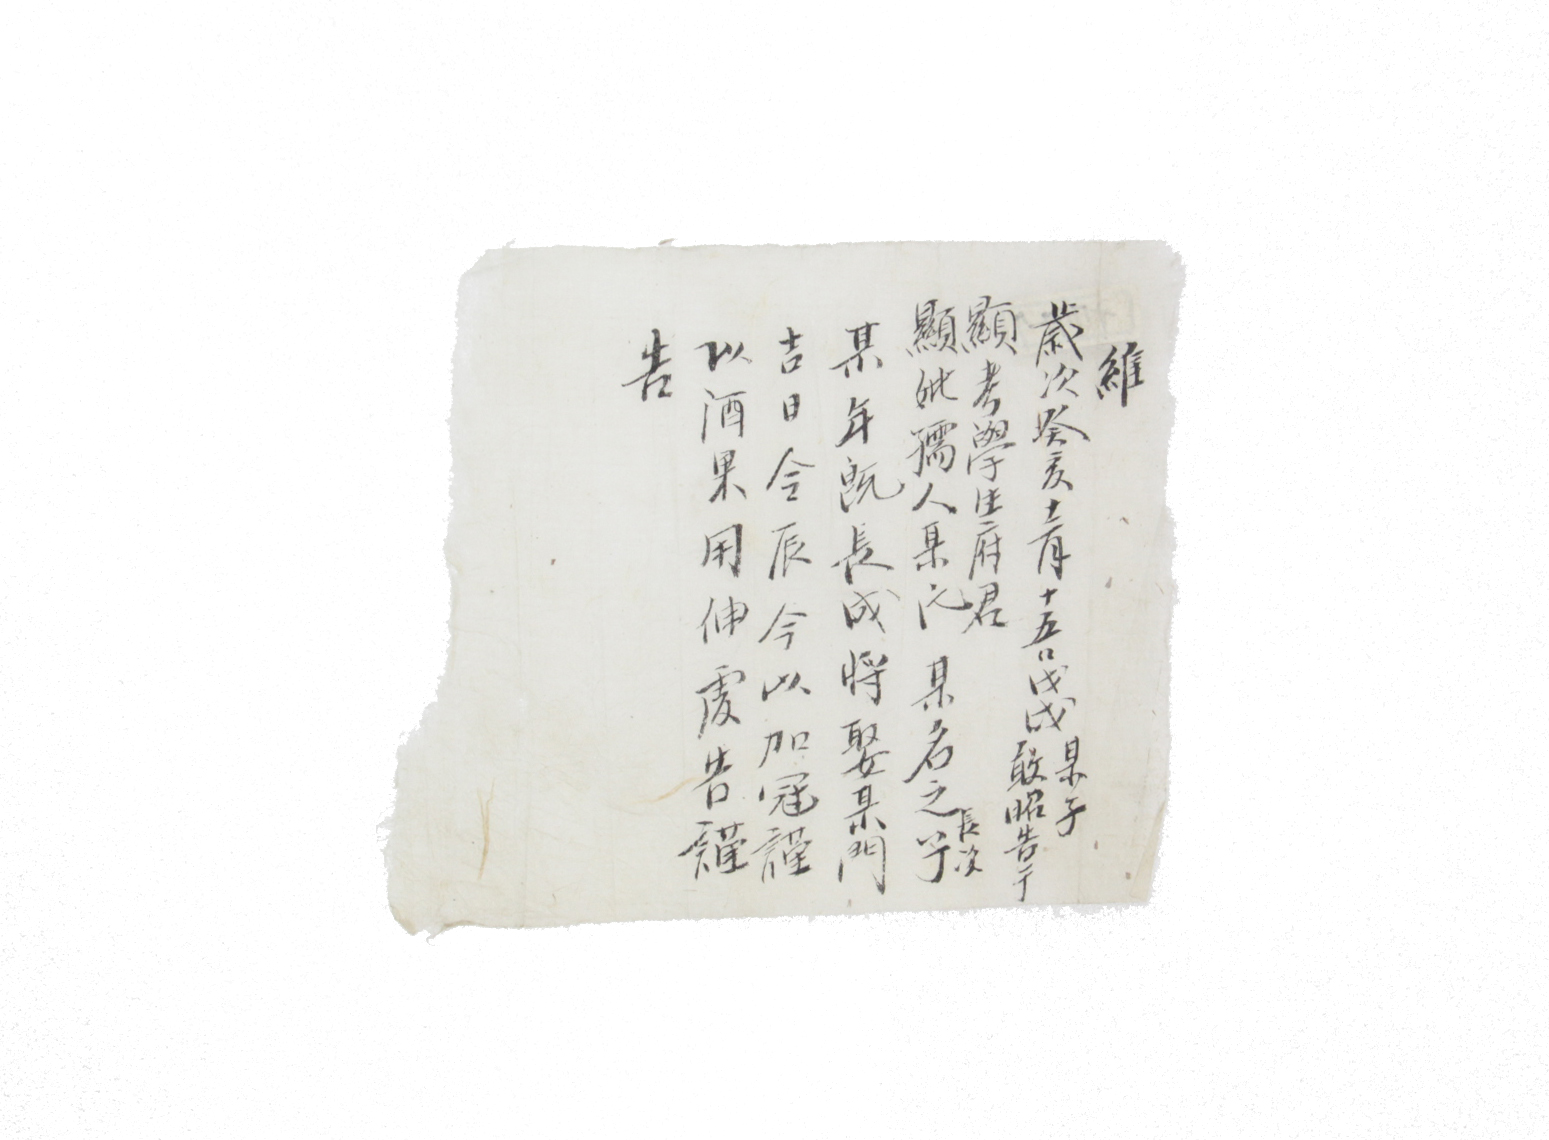 維
歲次癸亥十二月十五日戊戌某子敢昭告于
顯考學生府君
顯妣孺人某氏 某名之長次子
某年旣長成將娶某門
吉日令辰今以加冠謹
以酒果用伸虔告謹
告